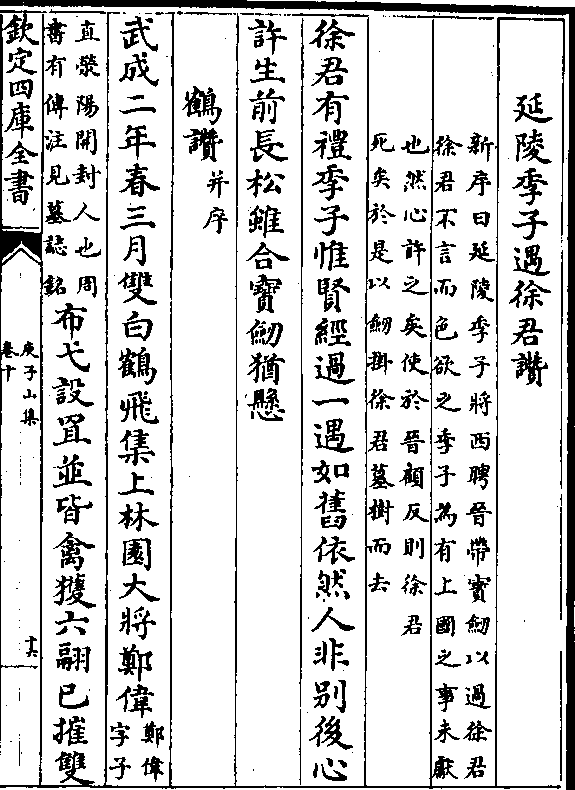 延陵季子遇徐君讚
新序曰延陵季子將西聘晉帶寳劒以過徐君
徐君不言而色欲之季子為有上國之事未獻
也然心許之矣使於晉顧反則徐君
死矣於是以劒掛徐君墓樹而去
徐君有禮季子惟賢經過一遇如舊依然人非别後心
許生前長松雖合寳劒猶懸
鶴讚并序
武成二年春三月雙白鶴飛集上林園大將鄭偉
鄭偉
字子
直滎陽開封人也周
書有傳注見墓誌銘
布弋設罝並皆禽獲六翮已摧雙
欽定四庫全書
庾子山集
卷十
十六